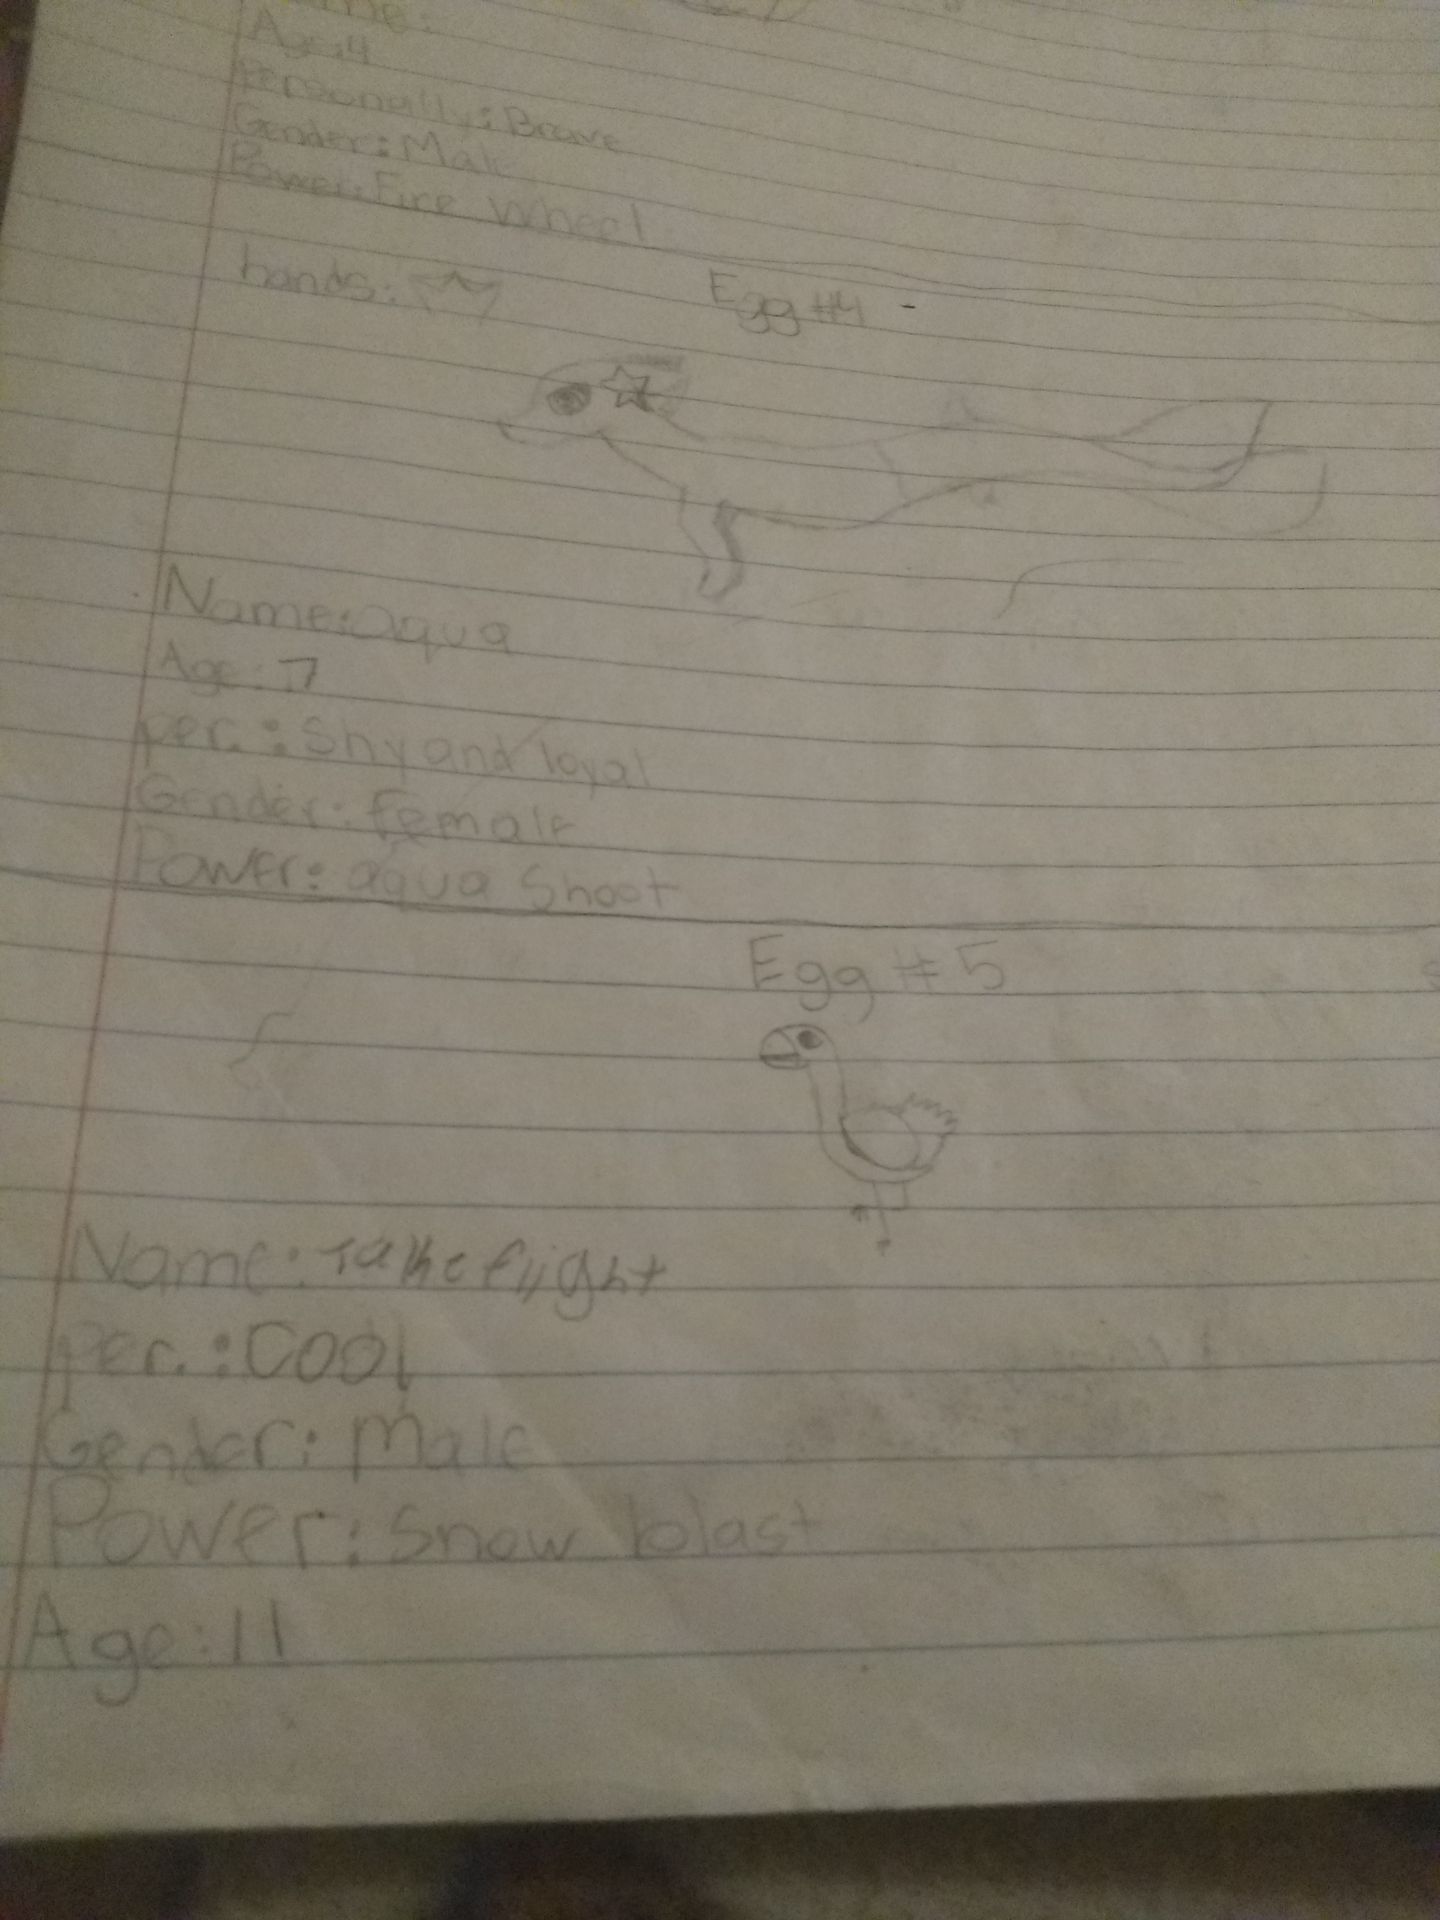 Age:4
Personally: Brave
Gender: Male
Power: Fire Wheel
hands:
Egg #4
Name: aqua
Age: 7
per.: Shy and loyal
Gender: female
Power: aqua Shoot
Egg #5
Name: Take flight
per.: Cool
Gender: Male
Power: Snow blast
Age: 11